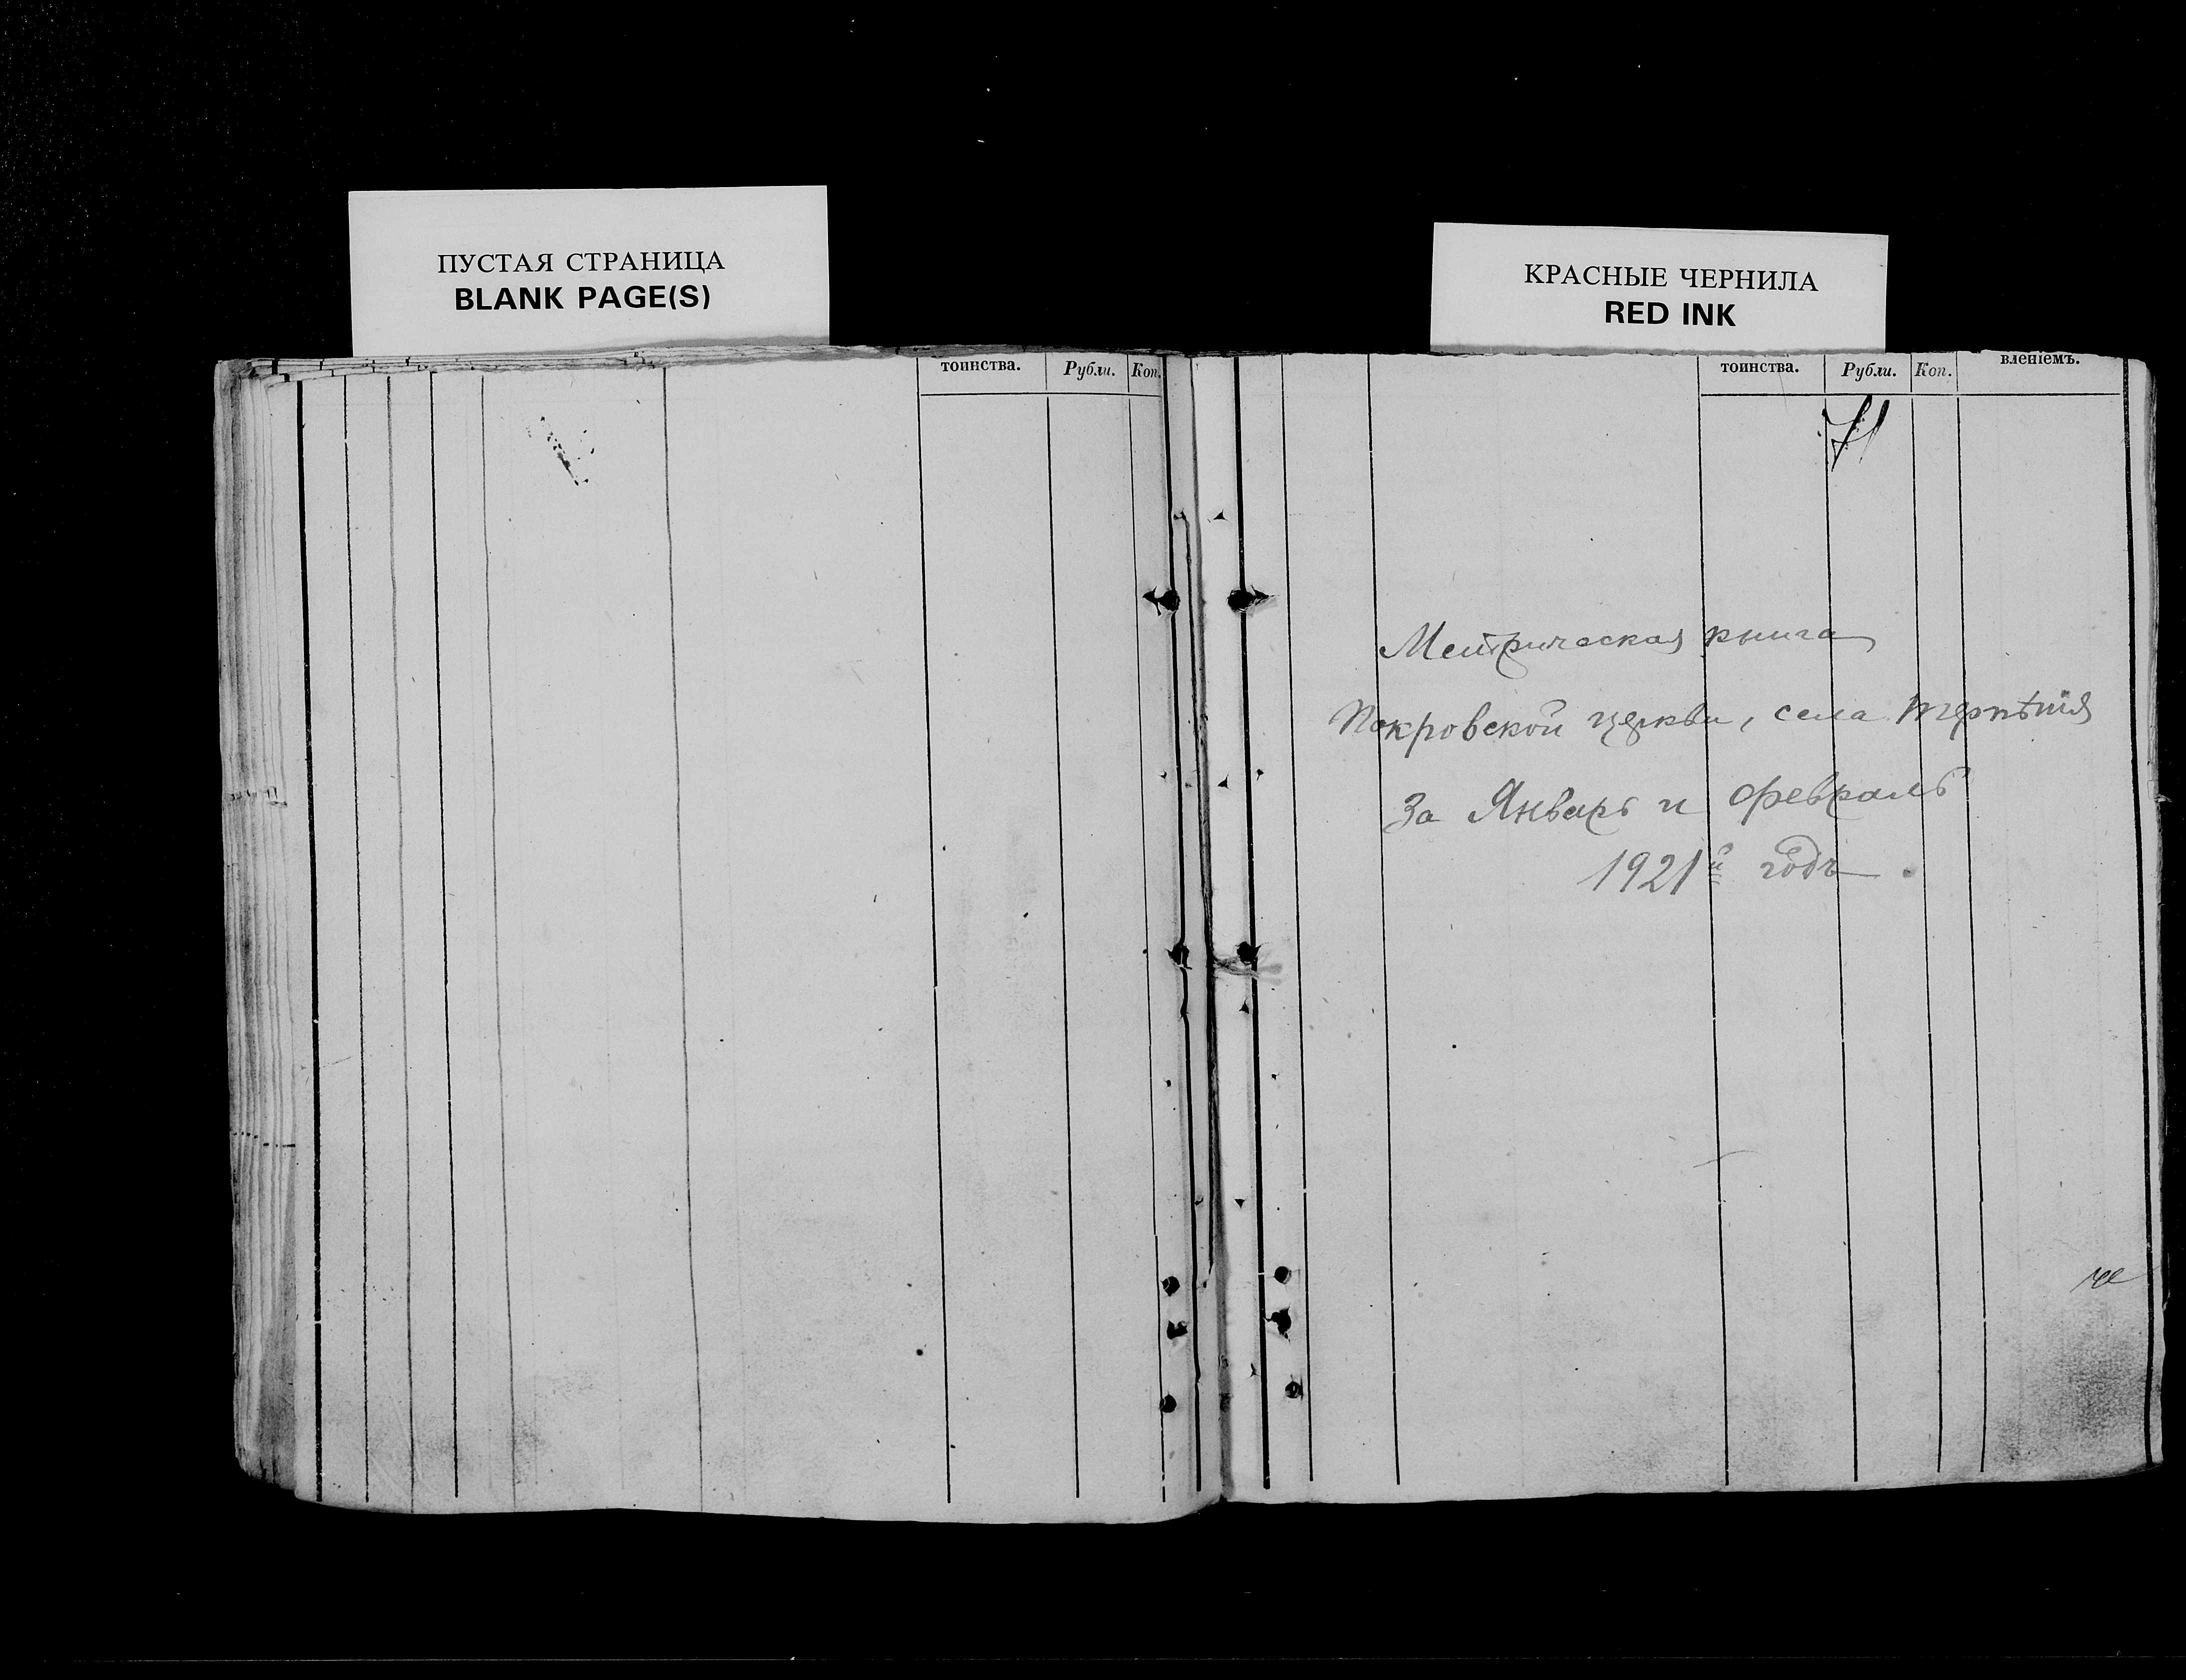 ПУСТАЯ СТРАНИЦА
BLANK PAGE(S)
тоинства. Рубли. Коп.
КРАСНЫЕ ЧЕРНИЛА
RED INK
тоинства. Рубли. Коп. вленіемъ.
71
Метрическая книга
Покровской церкви, села Терпѣнія
За Январь и Февраль
1921й годъ.